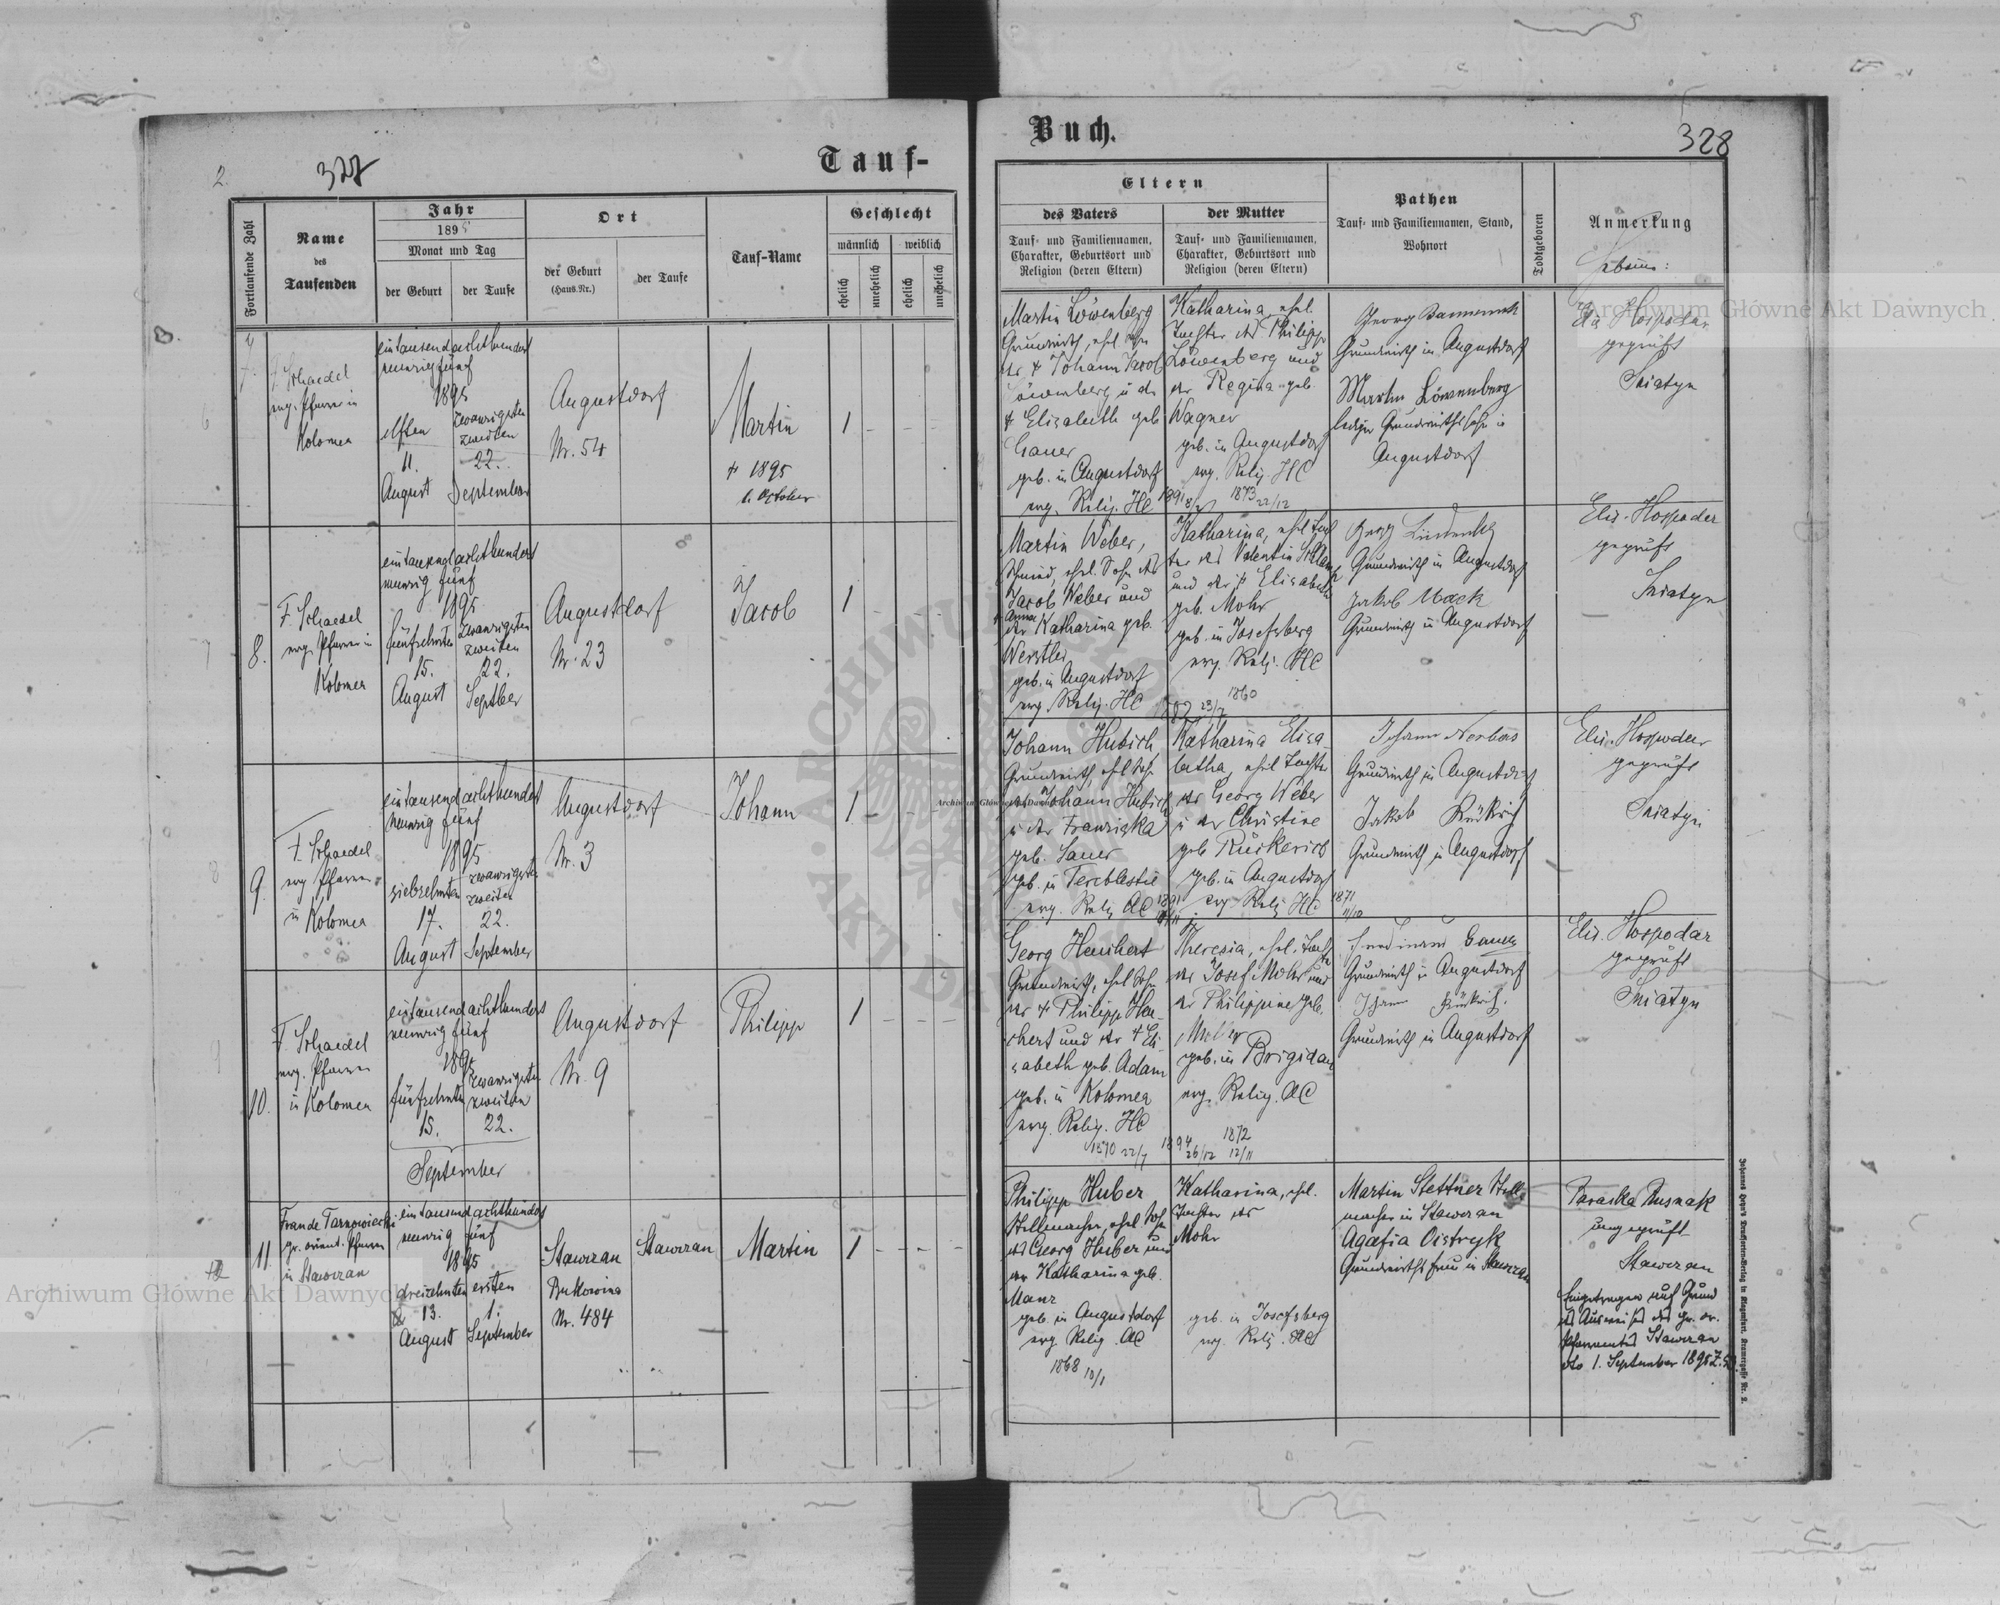 2
327
Tauf-
Fortlaufende Zahl
Name
des
Taufenden
Jahr
1895
Monat und Tag
der Geburt
der Taufe
Ort
der Geburt
(Haus-Nr.)
der Taufe
Tauf-Name
Geschlecht
männlich
weiblich
ehelich
unehelich
ehelich
unehelich
7.
F. Schaedel
evg. Pfarrer in
Kolomea
eintausendachthundert
neunzig fünf
1895
elften
11.
August
zwanzigsten
zweiten
22.
September
Augustdorf
Nr. 54
Martin
† 1895
October
1
8.
F. Schaedel
evg. Pfarrer in
Kolomea
eintausendachthundert
neunzig fünf
1895
fünfzehnten
15.
August
zwanzigsten
zweiten
22.
Septber
Augustdorf
Nr. 23
Jacob
1
9.
F. Schaedel
evg Pfarrer
in Kolomea
eintausendachthundert
neunzig fünf
1895
siebzehnten
17.
August
zwanzigsten
zweiten
22.
September
Augustdorf
Nr. 3
Johann
1
10.
F. Schaedel
evg. Pfarrer
in Kolomea
eintausendachthundert
neunzig fünf
1895
fünfzehnten
15.
zwanzigsten
zweiten
22.
September
Augustdorf
Nr. 9
Philipp
1
11.
Fran de Tarnowiecki
gr. orient. Pfarrer
in Stawczan
eintausendachthundert
neunzig fünf
1895
dreizehnten
13.
August
ersten
1.
September
Stawczan
Bukowina
Nr. 484
Stawczan
Martin
1
Buch.
328
Eltern
des Vaters
Tauf- und Familiennamen,
Charakter, Geburtsort und
Religion (deren Eltern)
der Mutter
Tauf- und Familiennamen,
Charakter, Geburtsort und
Religion (deren Eltern)
Pathen
Tauf- und Familiennamen, Stand,
Wohnort
Todtgeboren
Anmerkung
Martin Löwenberg
Grundwirth, ehel Sohn
des † Johann Jacob
Löwenberg u der
† Elisabeth geb
Gauer
geb. in Augustdorf
evg. Relig. HC
Katharina, ehel.
Tochter des Philipp
Löwenberg und
der Regina geb.
Wagner
geb. in Augustdorf
evg. Relig HC
1873
22/12
Georg
Grundwirth in Augustdorf
Martin Löwenberg
lediger Grundwirthssohn in
Augustdorf
Hospodar
geprüft
Sniatyn
Martin Weber,
Schmied, ehel. Sohn des
Jacob Weber und
der Anna Katharina geb.
Werstler
geb. in Augustdorf
evg. Relig. HC
Katharina, ehel Toch
ter des Valentin
und der † Elisabeth
geb. Mohr
geb. in Josefsberg
evg. Relig. HC
23/7
1860
Georg
Grundwirth in Augustdorf
Jakob Mack
Grundwirth in Augustdorf
Elis. Hospodar
geprüft
Sniatyn
Johann Hubich
Grundwirth, ehel Sohn
des Johann Hubich
u der Franziska
geb. Sauer
geb. in Tereblestie
evg. Relig AC
Katharina Elisa-
betha, ehel Tochter
des Georg Weber
u der Christine
geb Rückerich
geb. in Augustdorf
evg Relig HC
1871
11/10
Johann
Grundwirth in Augustdorf
Jakob
Grundwirth in Augustdorf
Elis. Hospodar
geprüft
Sniatyn
Georg Heuchert
Grundwirth, ehel Sohn
des † Philipp Heu-
chert und der † Eli-
sabeth geb. Adam
geb. in Kolomea
evg. Relig. HC
1870 22/7
Theresia, ehel. Tochter
des Josef Mohr und
der Philippine geb.
geb. in Brigidau
evg. Relig. AC
1894
26/12
1872
12/11
Ferdinand
Grundwirth in Augustdorf
Johann
Grundwirth in Augustdorf
Elis. Hospodar
geprüft
Sniatyn
Philipp Huber
Stellmacher, ehel Sohn
des Georg Huber und
der Katharina geb.
Manz
geb. in Augustdorf
evg Relig. AC
1868 10/1
Katharina, ehel.
Tochter des
Mohr
geb. in Josefsberg
evg. Relig. AC
Martin Stettner Stell-
macher in Stawczan
Agafia Oistryk
Grundwirths Frau in Stawczan
Paraska Rusnak
ungeprüft
Stawczan
Eingetragen auf Grund
des Ausweises des gr. or.
Pfarramtes Stawczan
dto 1. September 1895
Archiwum Główne Akt Dawnych
Archiwum Główne Akt Dawnych
Archiwum Główne Akt Dawnych